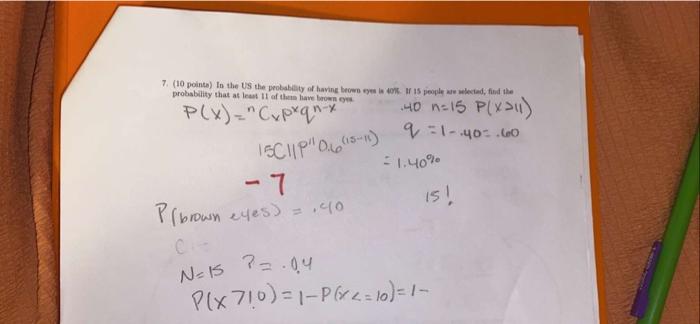 7. (10 points) In the US the probability of having brown eyes is 40%. If 15 people are selected, find the
probability that at least 11 of them have brown eyes.
P(x)=ⁿCₓpˣqⁿ⁻ˣ
.40 n=15 P(x≥11)
q=1-.40=.60
15C11P¹¹0.6⁽¹⁵⁻¹¹⁾
=1.40%
-7
15!
P(brown eyes) = .40
N=15 ?=.04
P(x710)=1-P(x<=10)=1-